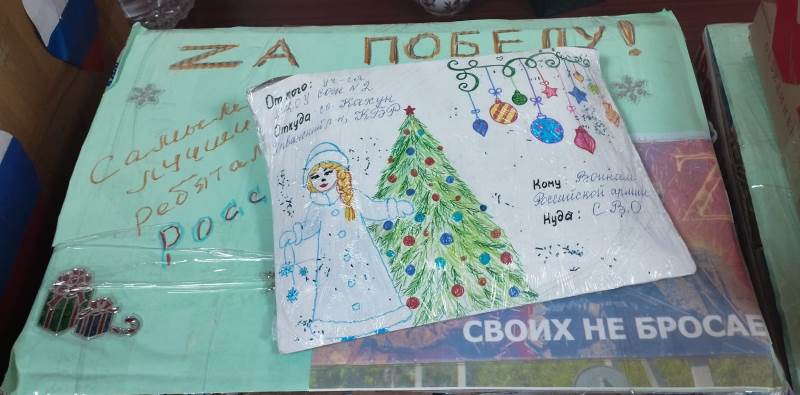 ZA ПОБЕДУ!
Самым
лучшим
ребятам
Росс
От кого: уч-ся
СОШ № 2
Откуда с. Кахун
р-н, КБР
Кому Воинам
Российской армии
Куда: СВО
СВОИХ НЕ БРОСАЕ